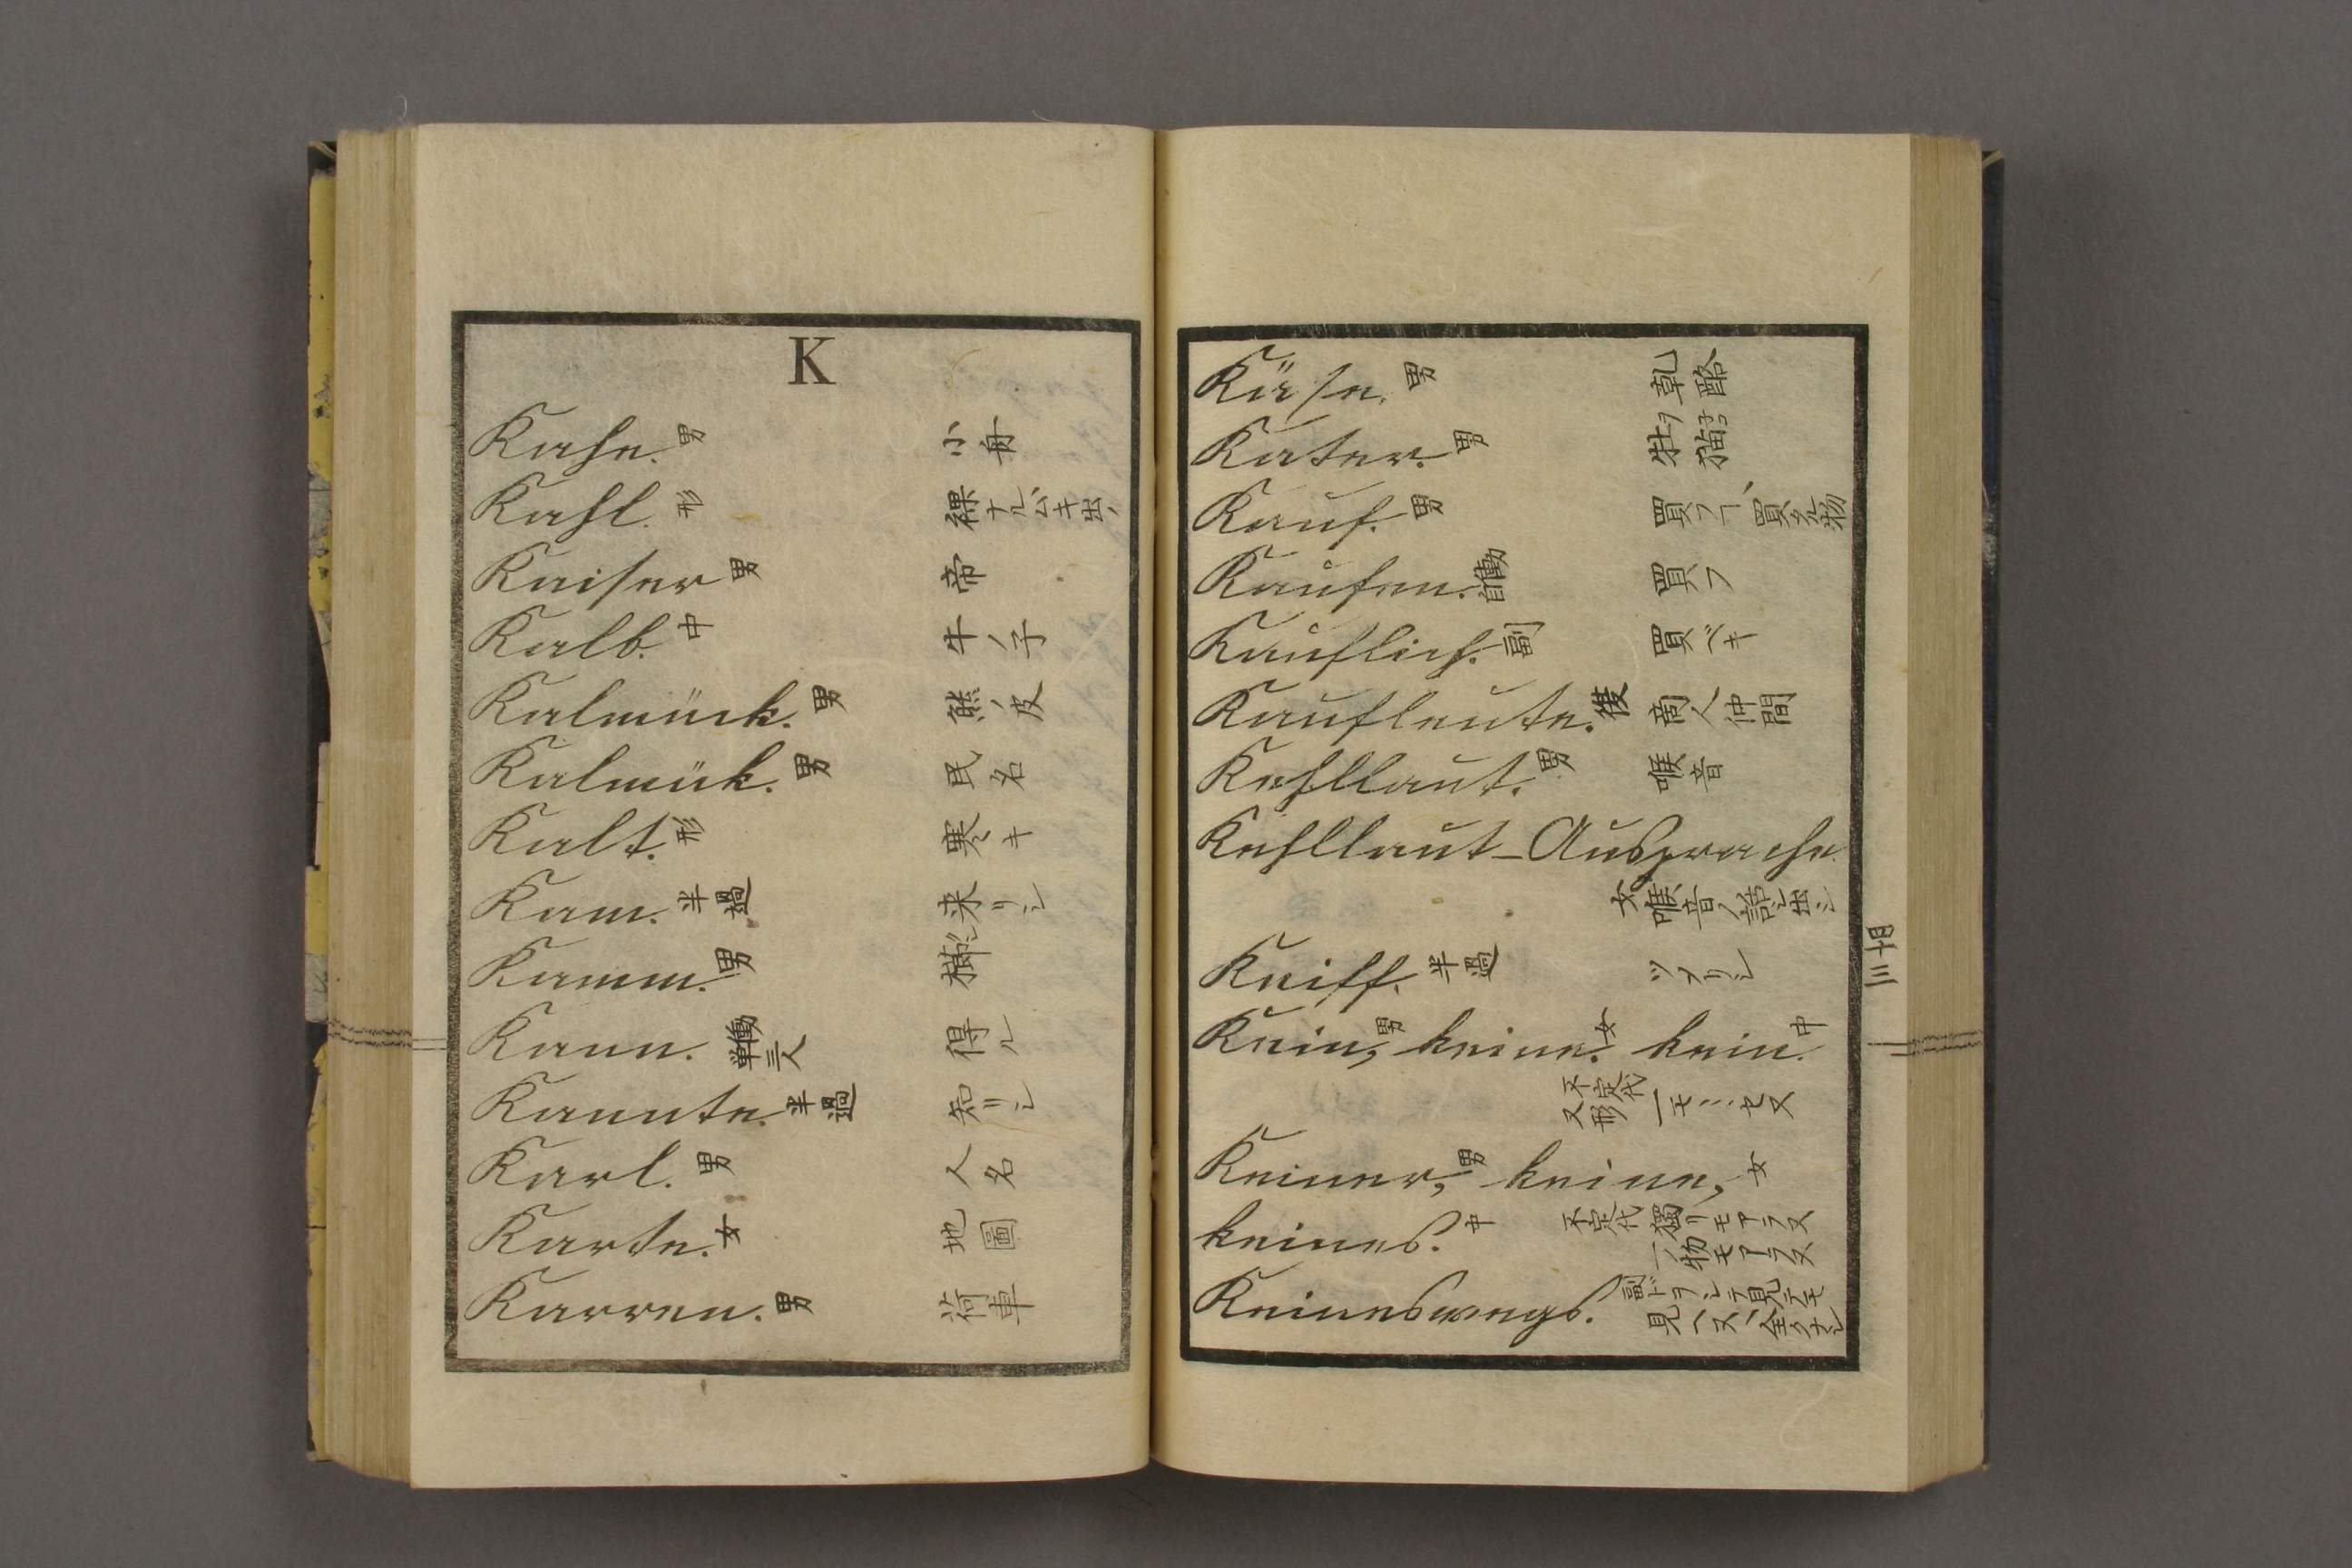 K
Kahn. 男 小舟
Kahl. 形 裸ナル
Kaiser 男 帝
Kalb. 中 牛ノ子
Kalmück. 男 熊ノ皮
Kalmük. 男 民名
Kalt. 形 寒キ
Kam. 半過 来リシ
Kamm. 男 櫛
Kann. 三人 得ル
Kannte. 半過 知リシ
Karl. 男 人名
Karte. 女 地圖
Karren. 男 荷車
Käse. 男 乾酪
Kater. 男 牡猫
Kauf. 男 買フ
Kaufen. 買フ
Kauflich. 副 買ベキ
Kaufleute. 複 商人仲間
Kehllaut. 男 喉音
Kehllaut-Aussprache.
女 喉音ノ
Keiff. 半過
Kein, 男 keine. 女 kein. 中
不定代 一モ…セヌ
又形
Keiner, 男 keine, 女
keines. 中 不定代 獨リモアラヌ
一物モアラヌ
Keineswegs. 副